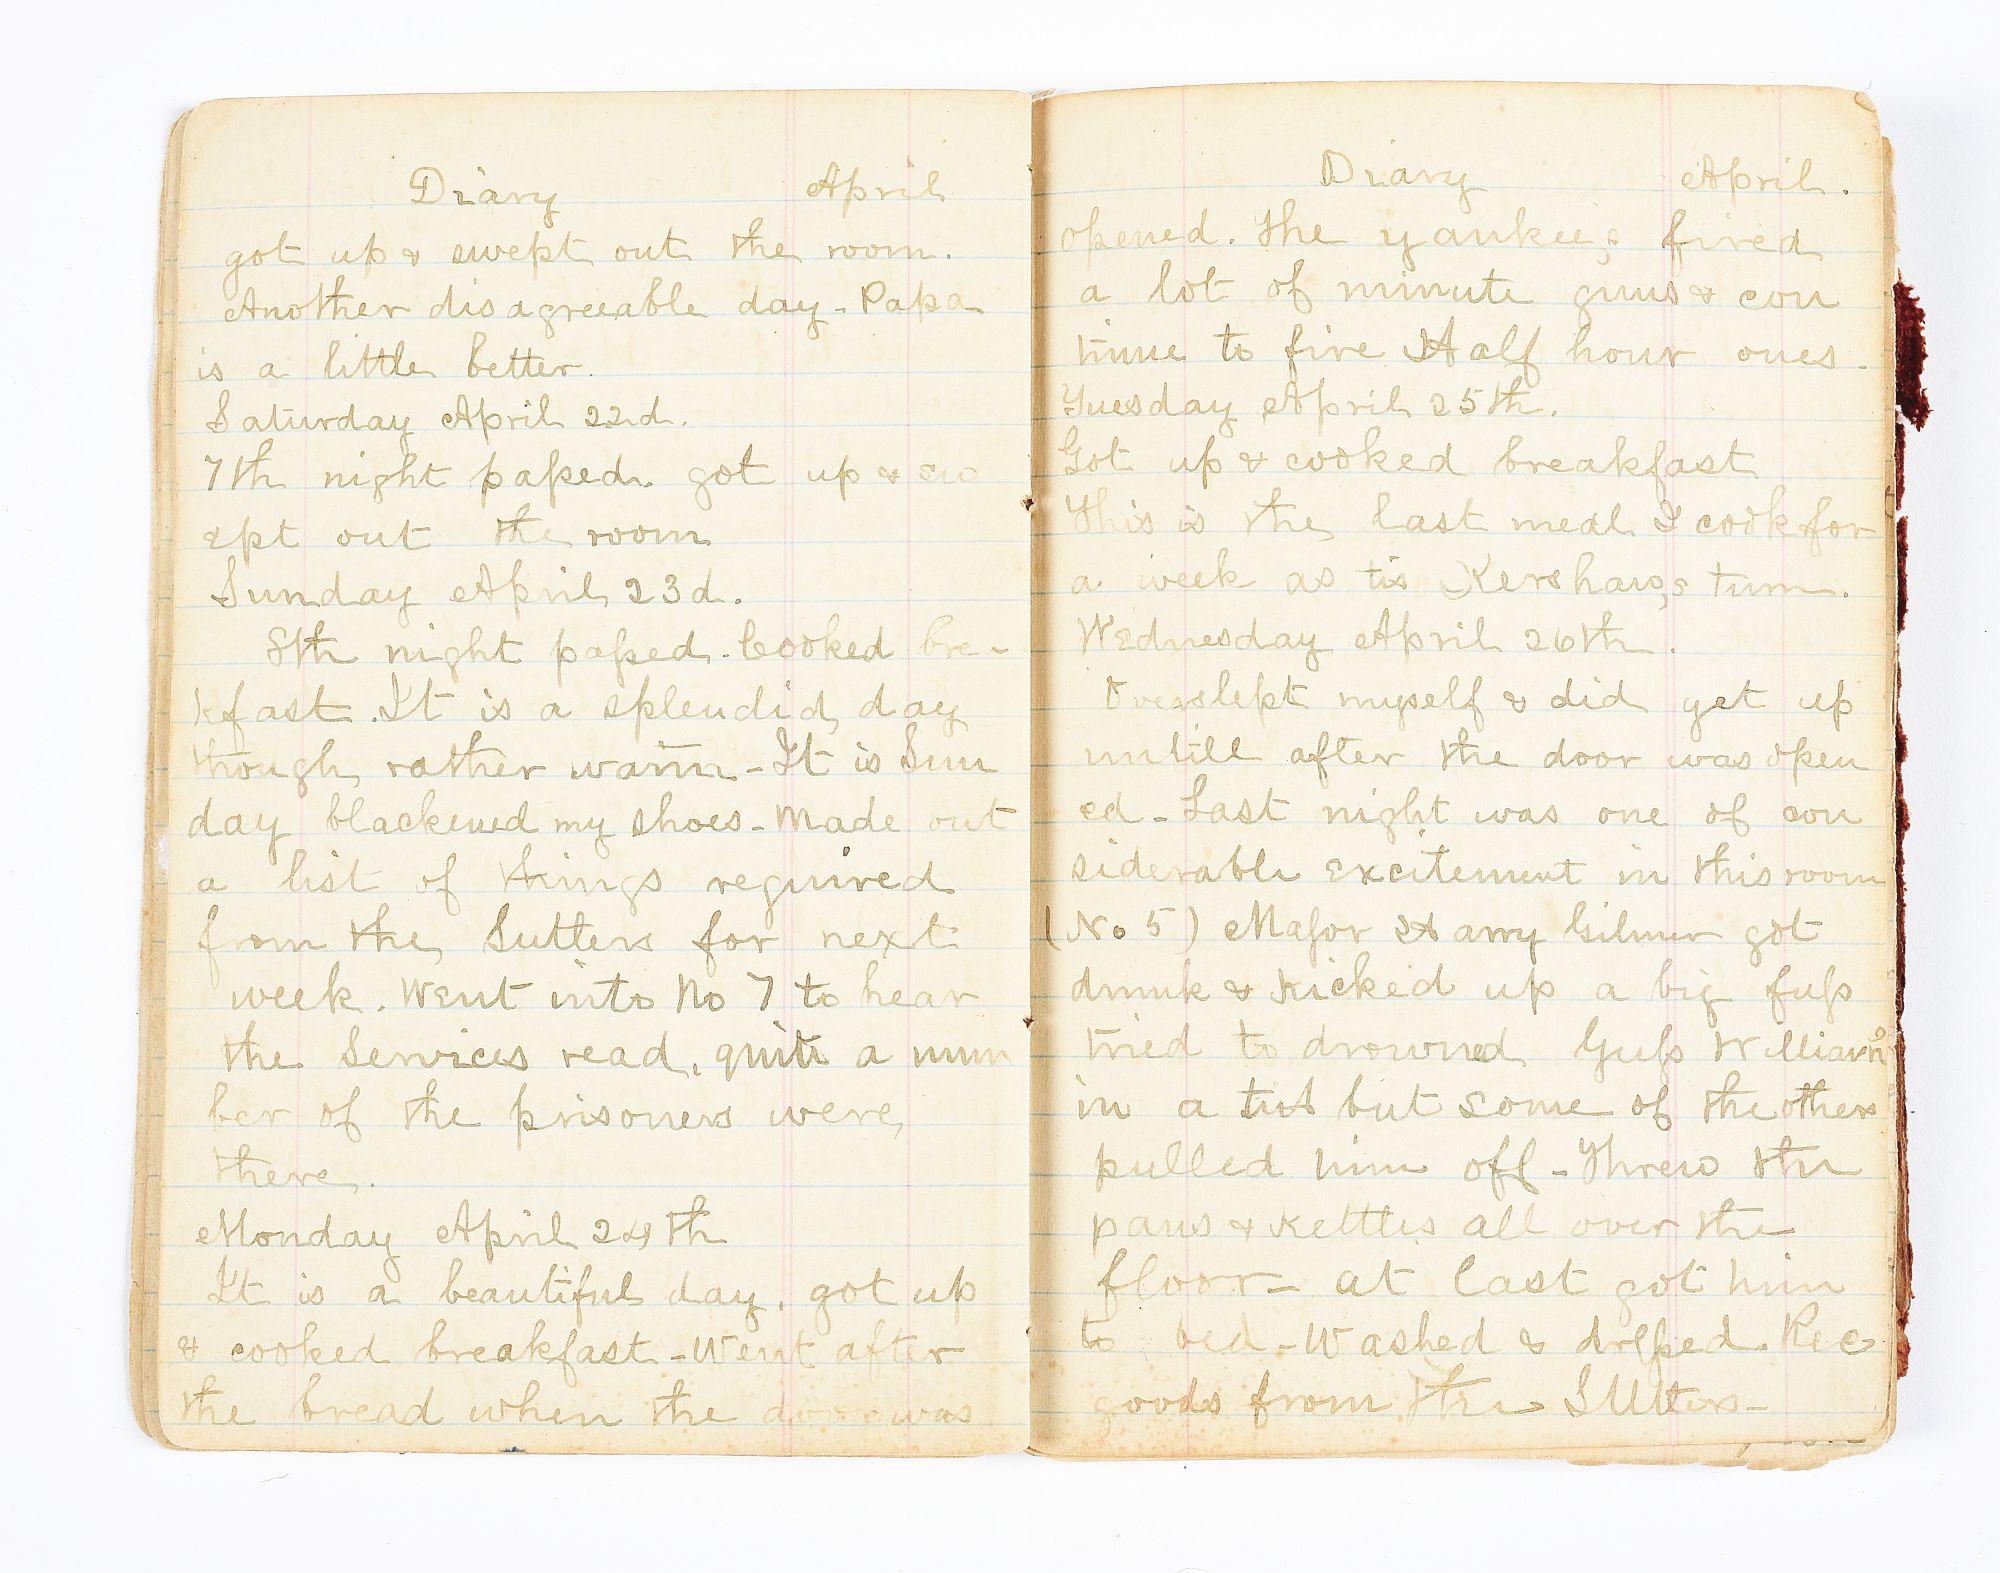 Diary April
got up & swept out the room.
Another disagreeable day - Papa
is a little better.
Saturday April 22d.
7th night paſsed. got up & sw
ept out the room
Sunday April 23d.
8th night paſsed. Cooked bre-
kfast. It is a splendid day
though rather warm - It is Sun
day blackened my shoes - Made out
a list of things required
from the Sutters for next
week. Went into No 7 to hear
the Services read, quite a num
ber of the prisoners were,
there.
Monday April 24th
It is a beautiful day, got up
& cooked breakfast - Went after
the bread when the door was
Diary April.
opened. The yankie,s fired
a lot of minute guns & con
tinue to fire Half hour ones.
Tuesday April 25th.
Got up & cooked breakfast
This is the last meal I cook for
a week as tis Kershaw,s turn.
Wednesday April 26th.
Overslept myself & did get up
untill after the door was open
ed - Last night was one of con
siderable excitement in this room
(No 5) Major Harry Gilmer got
drunk & kicked up a big fuſs
tried to drowned Guſs Williams
in a tub but some of the others
pulled him off - Threw the
pans & kettles all over the
floor - at last got him
to bed - Washed & dreſsed. Rec
goods from the SUtters -